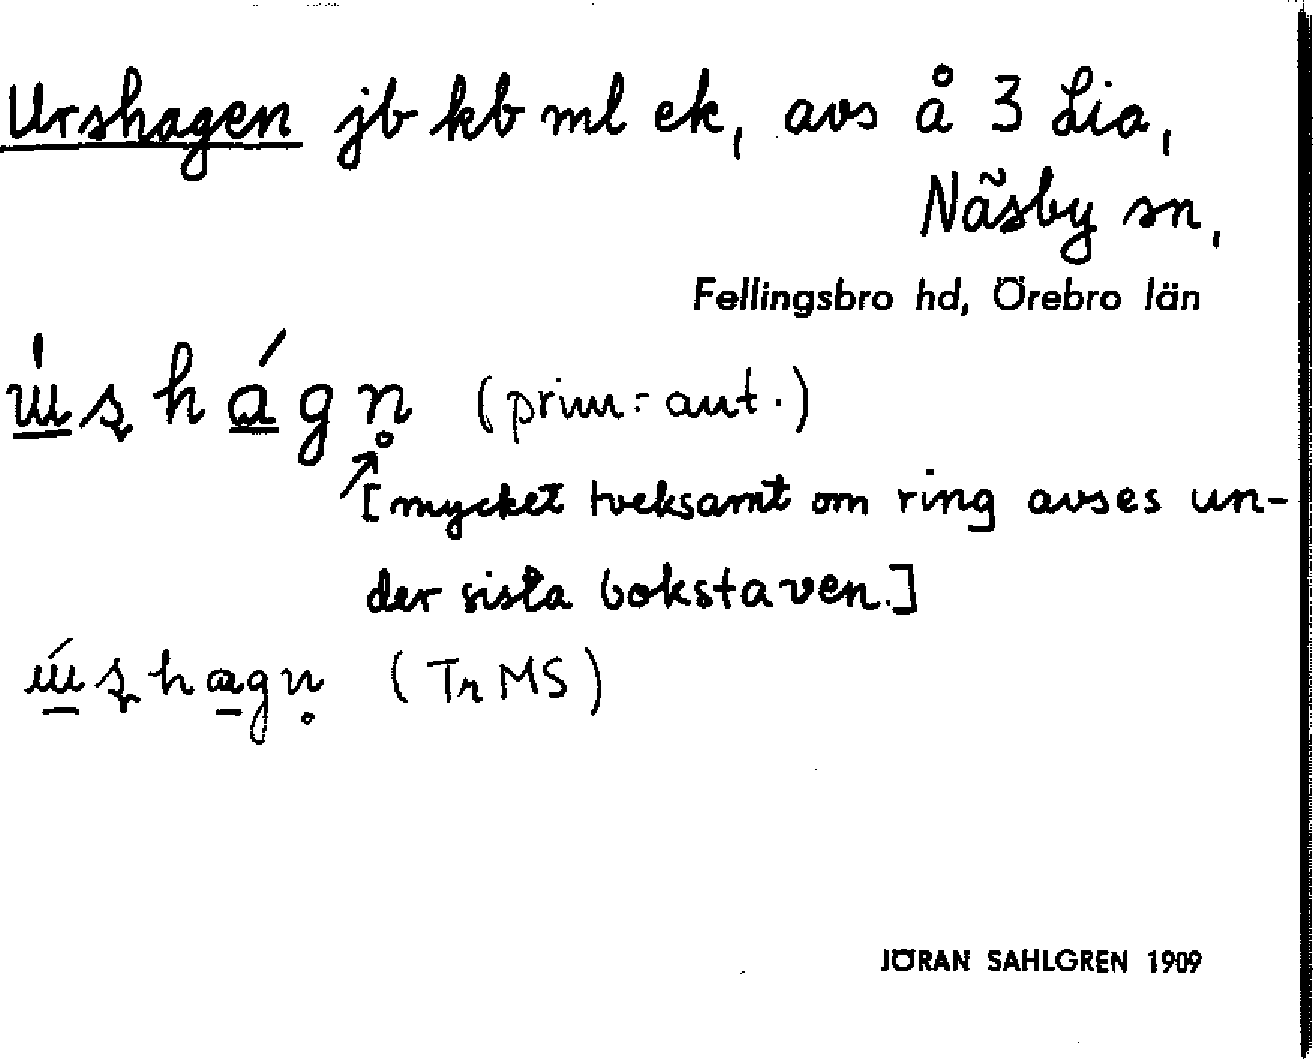 Urshagen jb kb ml ek, avs å 3 Lia,
Näsby sn,
Fellingsbro hd, Örebro län
(prim.-ant.)
[mycket tveksamt om ring avses un-
der sista bokstaven.]
(Tr MS)
JÖRAN SAHLGREN 1909